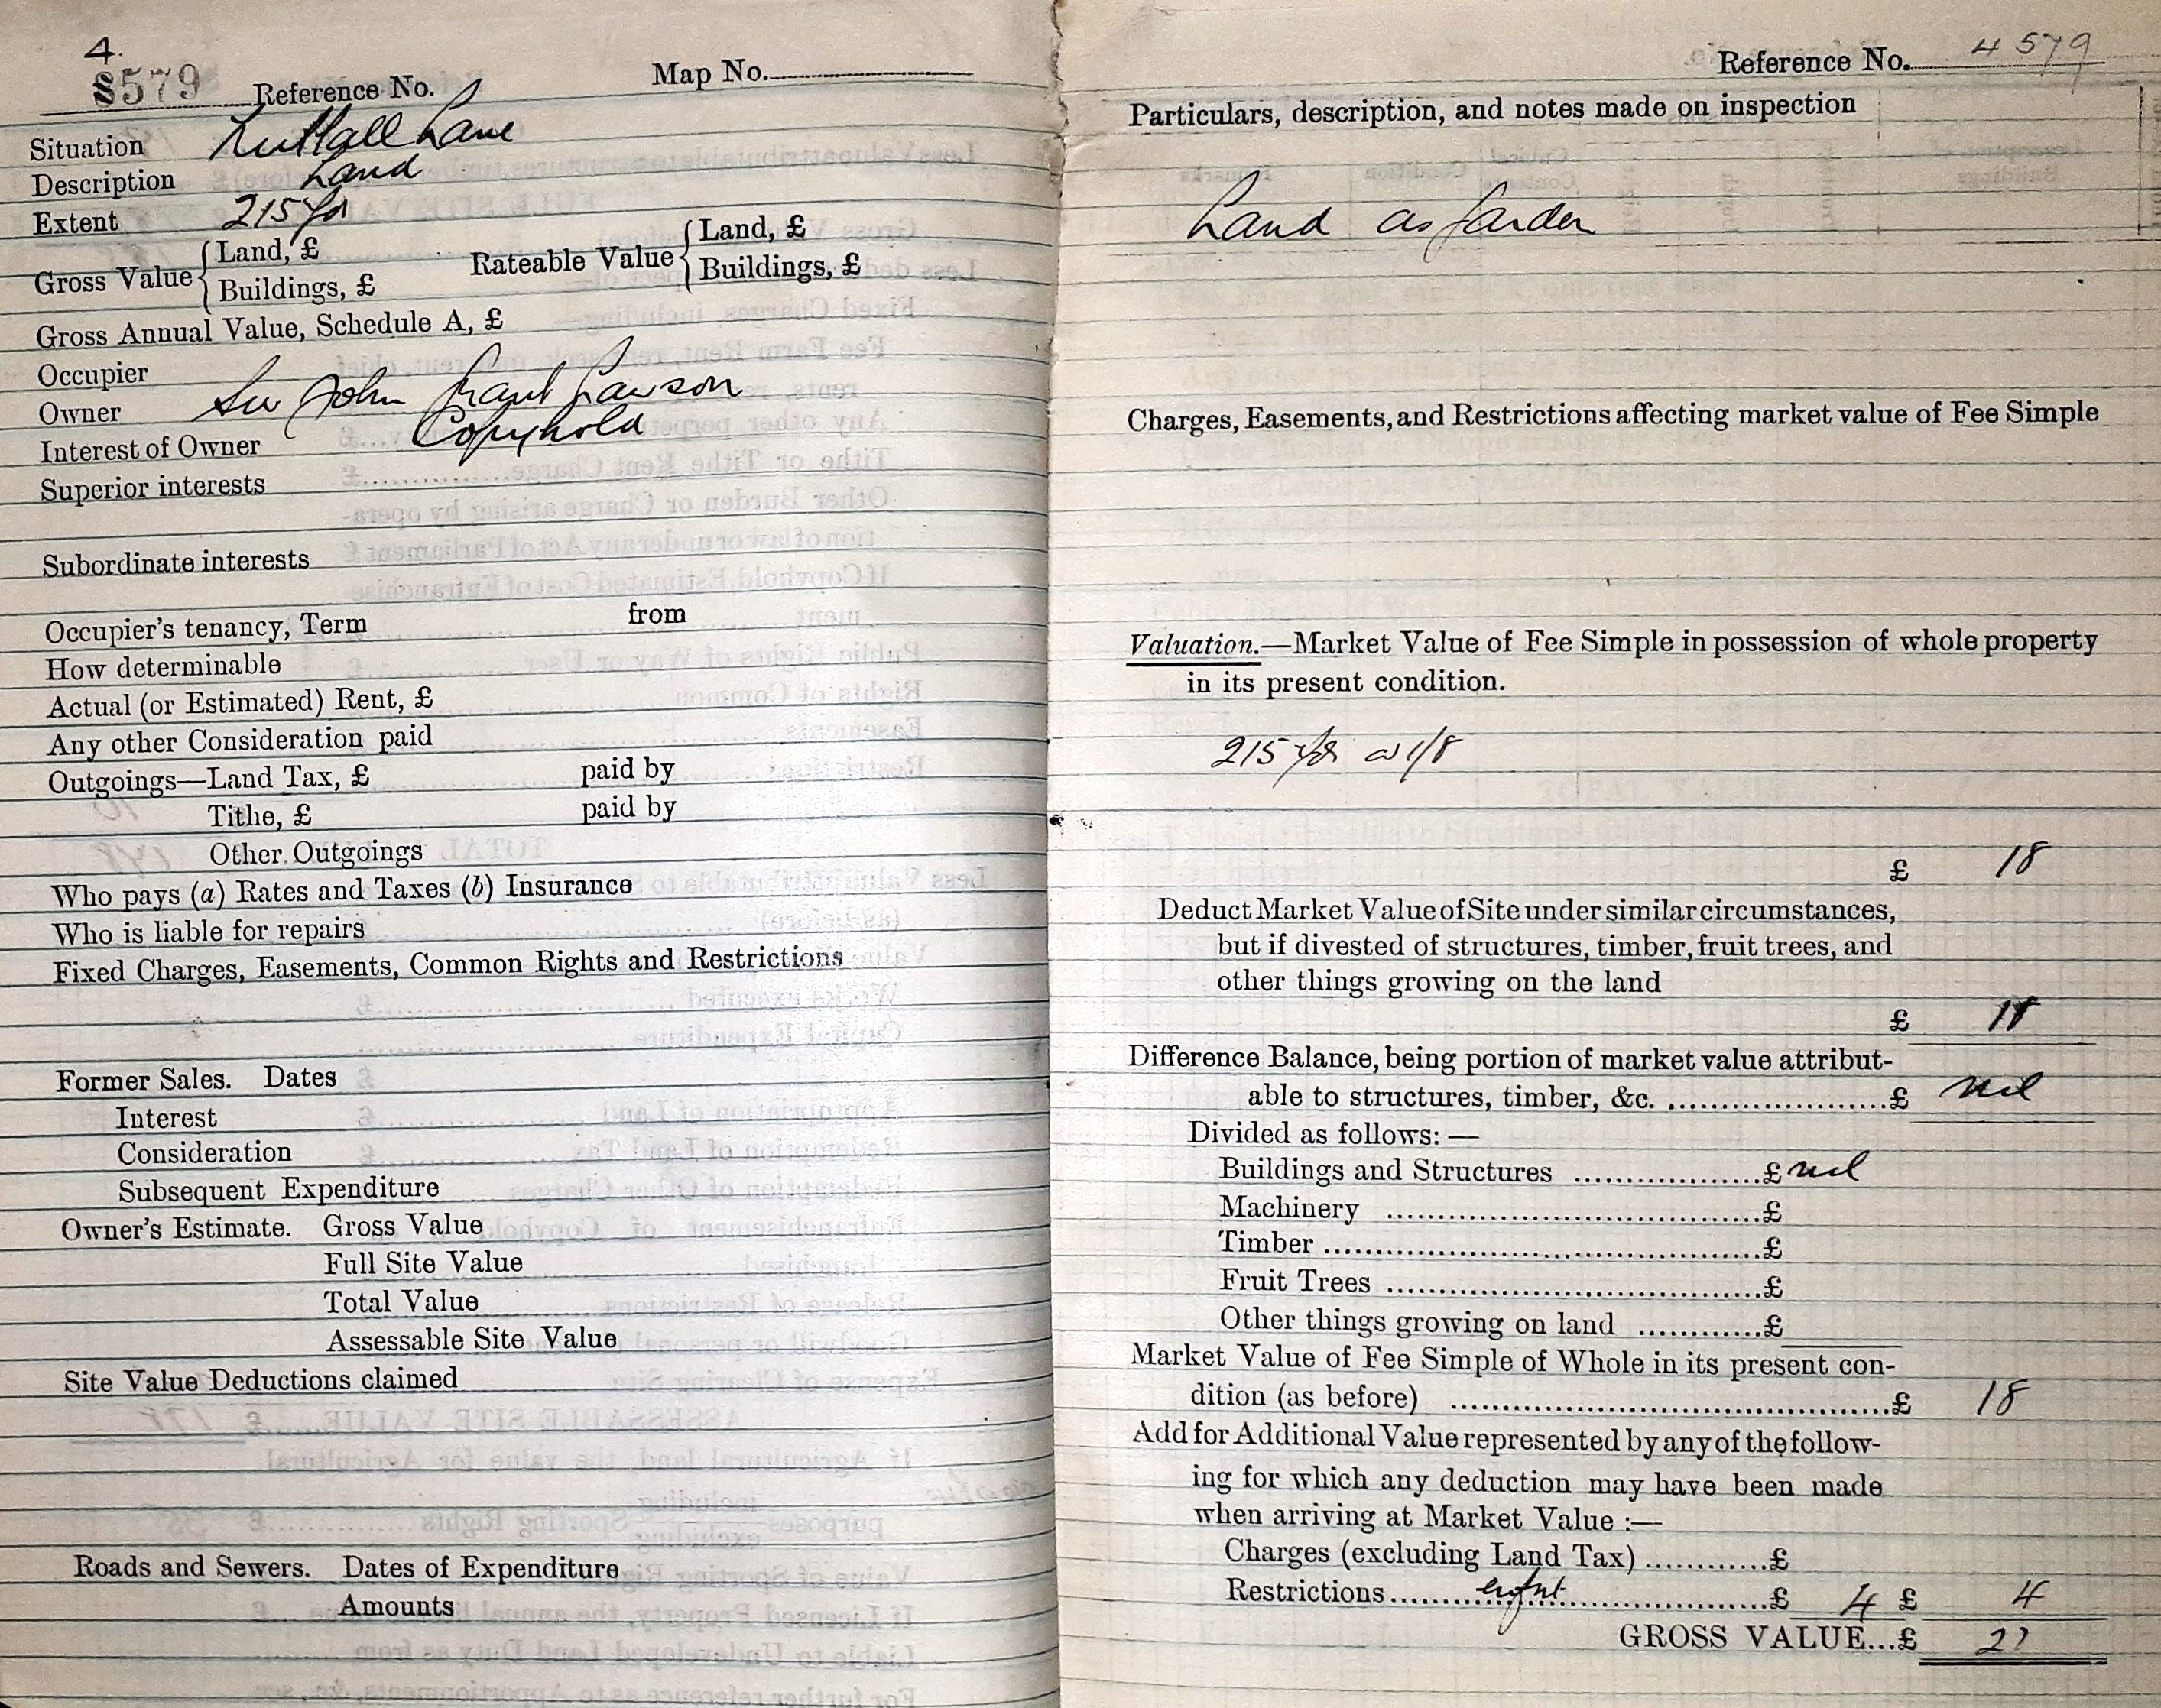 4.
8579 Reference No. Map No.
Situation Nuttall Lane
Description Land
Extent 215 yds
Gross Value { Land, £ Rateable Value { Land, £
Buildings, £ Buildings, £
Gross Annual Value, Schedule A, £
Occupier
Owner Sir John Grant Lawson
Interest of Owner Copyhold
Superior interests
Subordinate interests
Occupier's tenancy, Term from
How determinable
Actual (or Estimated) Rent, £
Any other Consideration paid
Outgoings—Land Tax, £ paid by
Tithe, £ paid by
Other Outgoings
Who pays (a) Rates and Taxes (b) Insurance
Who is liable for repairs
Fixed Charges, Easements, Common Rights and Restrictions
Former Sales. Dates
Interest
Consideration
Subsequent Expenditure
Owner's Estimate. Gross Value
Full Site Value
Total Value
Assessable Site Value
Site Value Deductions claimed
Roads and Sewers. Dates of Expenditure
Amounts
Reference No. 4579
Particulars, description, and notes made on inspection
Land as garden
Charges, Easements, and Restrictions affecting market value of Fee Simple
Valuation.—Market Value of Fee Simple in possession of whole property
in its present condition.
215 yds @ 1/8
£ 18
Deduct Market Value of Site under similar circumstances,
but if divested of structures, timber, fruit trees, and
other things growing on the land
£ 18
Difference Balance, being portion of market value attribut-
able to structures, timber, &c. £ nil
Divided as follows:—
Buildings and Structures £ nil
Machinery £
Timber £
Fruit Trees £
Other things growing on land £
Market Value of Fee Simple of Whole in its present con-
dition (as before) £ 18
Add for Additional Value represented by any of the follow-
ing for which any deduction may have been made
when arriving at Market Value :—
Charges (excluding Land Tax) £
Restrictions £ 4 £ 4
GROSS VALUE...£ 22